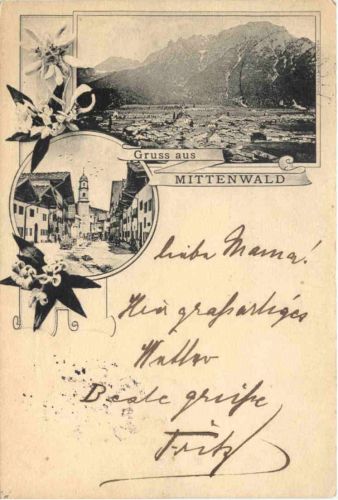 Gruss aus
MITTENWALD
liebe Mama!
Hier großartiges
Wetter
Beste grüße
Fritz